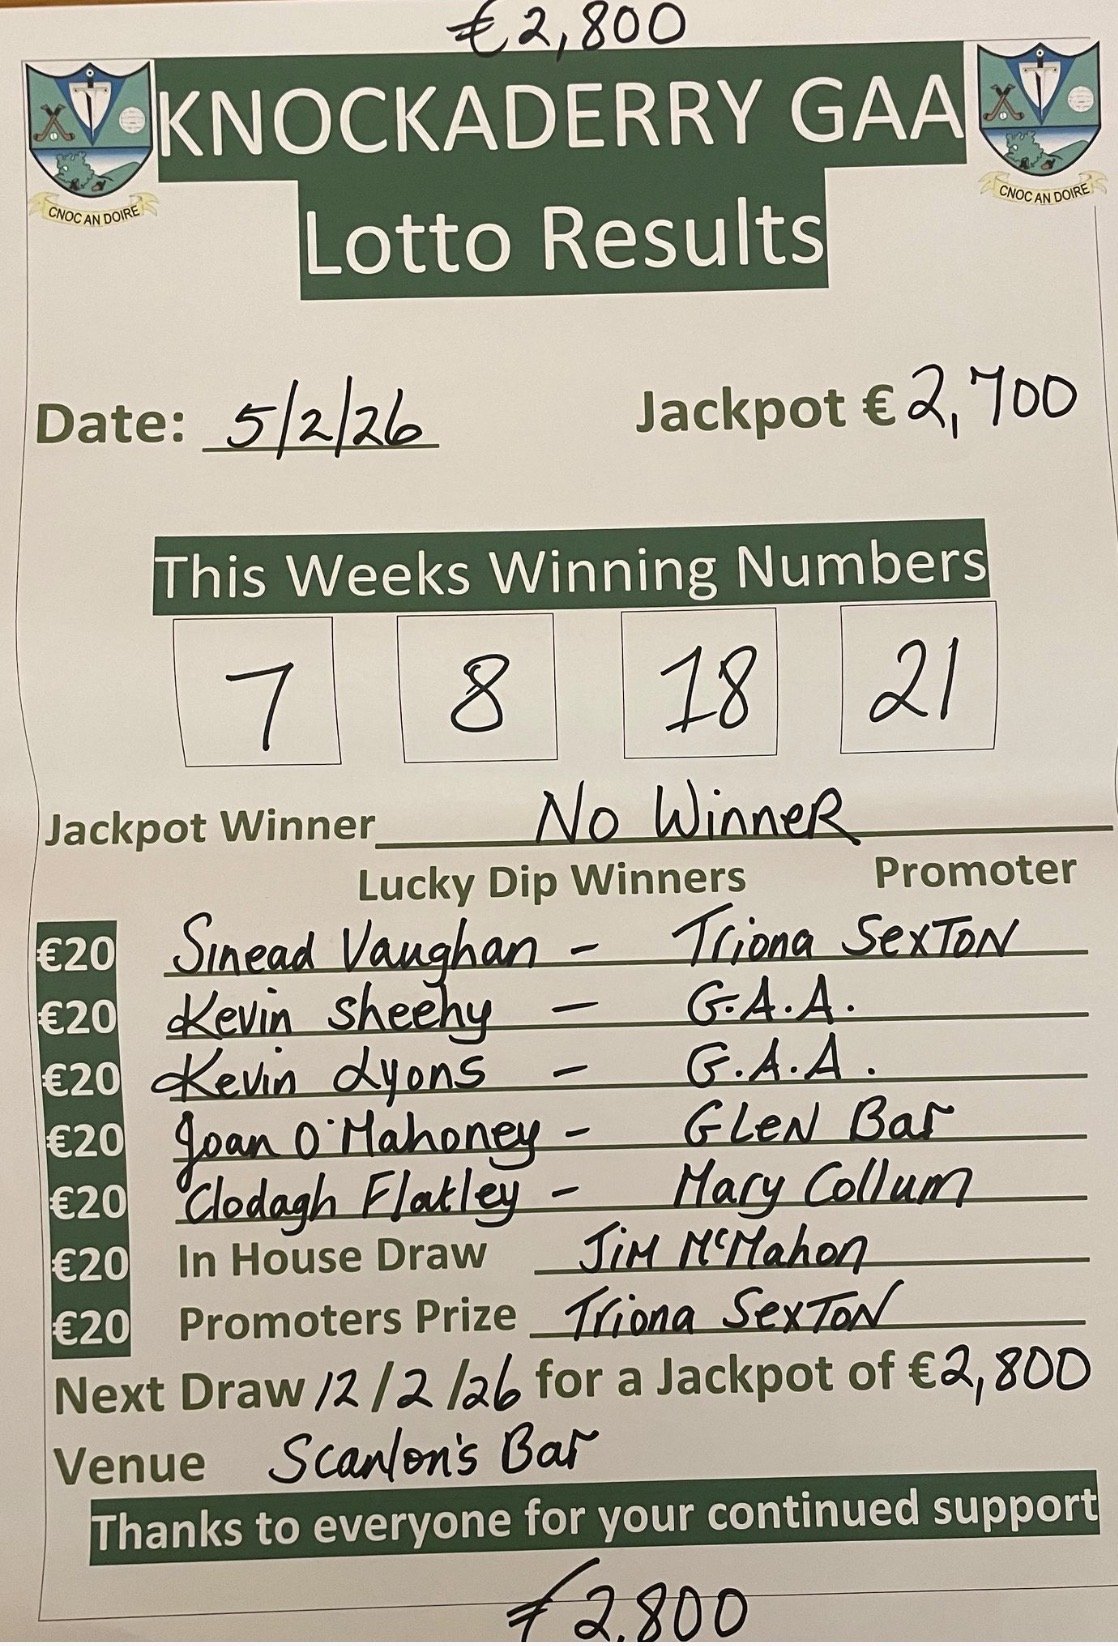 €2,800
KNOCKADERRY GAA
CNOC AN DOIRE
CNOC AN DOIRE
Lotto Results
Date: 5/2/26 Jackpot € 2,700
This Weeks Winning Numbers
7 8 18 21
Jackpot Winner No Winner
Lucky Dip Winners Promoter
€20 Sinead Vaughan - Triona Sexton
€20 Kevin Sheehy - G.A.A.
€20 Kevin Lyons - G.A.A.
€20 Joan O'Mahoney - Glen Bar
€20 Clodagh Flatley - Mary Collum
€20 In House Draw Jim McMahon
€20 Promoters Prize Triona Sexton
Next Draw 12/2/26 for a Jackpot of €2,800
Venue Scanlon's Bar
Thanks to everyone for your continued support
€2,800